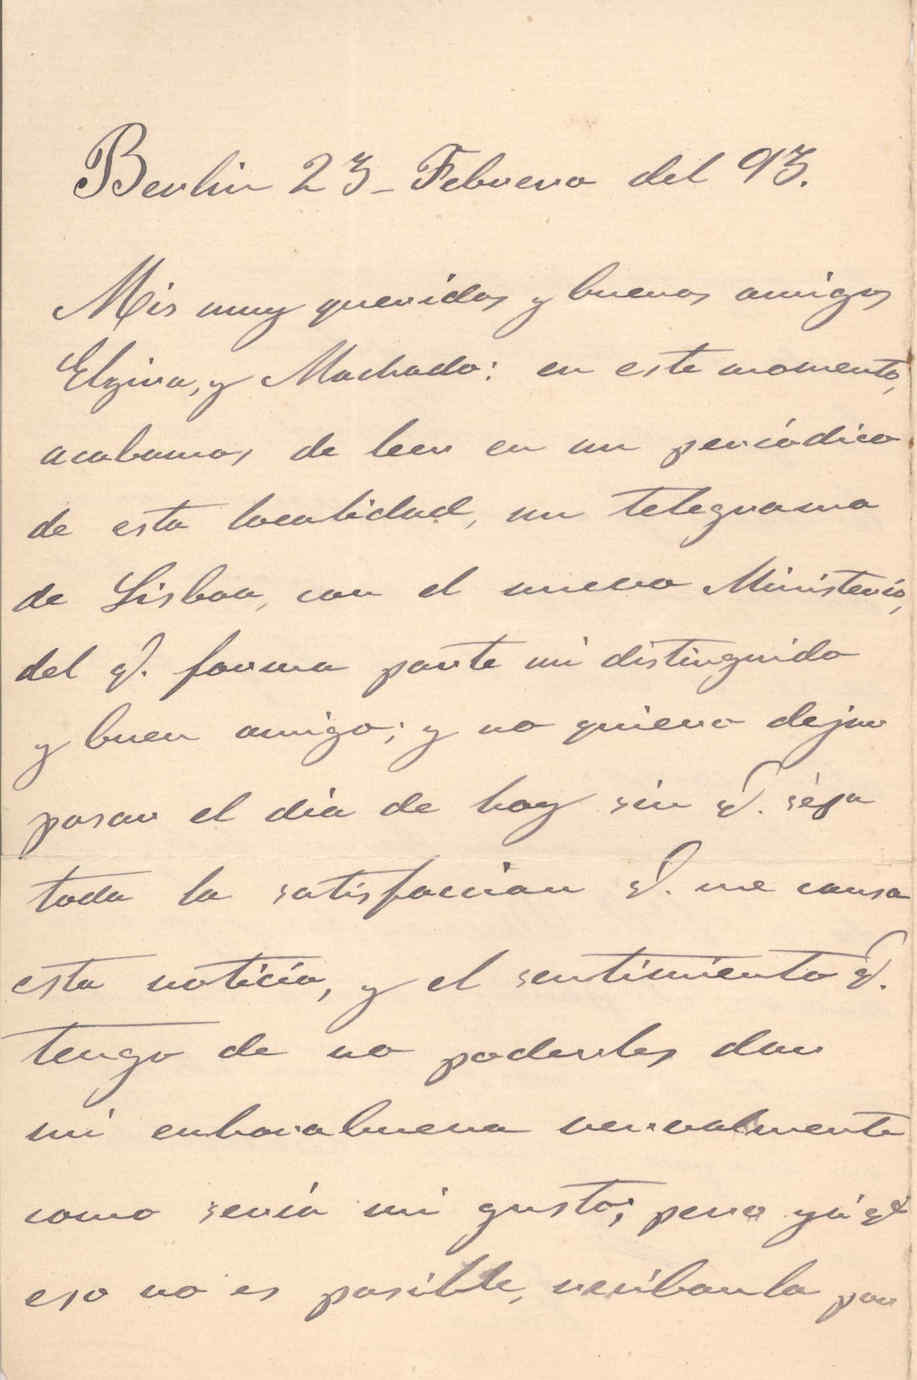 Berlin 23 - Febrero del 93.
Mis muy queridos y buenos amigos
Elzira, y Machado: en este momento,
acabamos de leer en un periódico
de esta localidad, un telegrama
de Lisboa, con el nuevo Ministerio,
del q. forma parte mi distinguido
y buen amigo; y no quiero dejar
pasar el dia de hoy sin q. sépa
toda la satisfaccion q. me causa
esta noticia, y el sentimiento q.
tengo de no poderles dar
mi enhorabuena vervalmente
como seria mi gusto; pero yá q.
eso no es posible, recibanla por